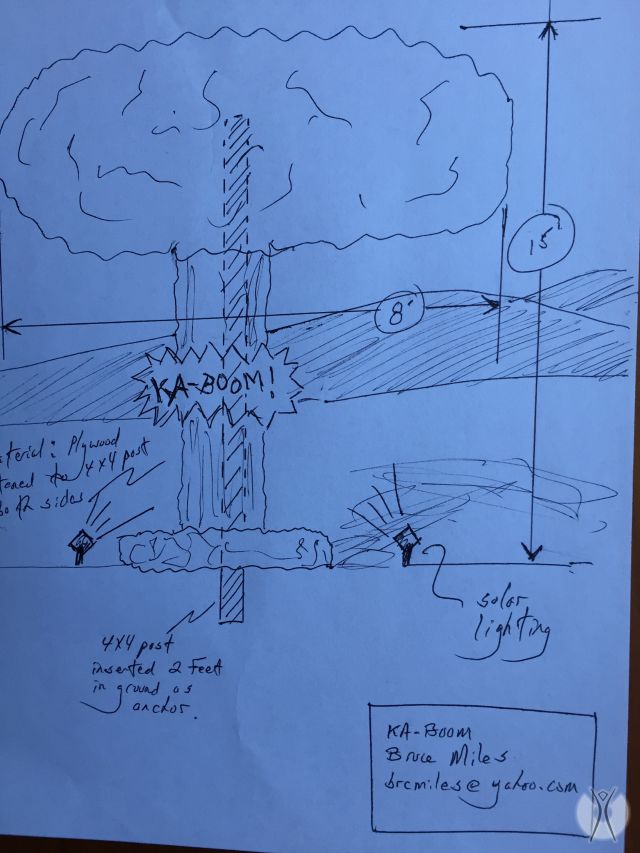 15'
8'
KA-BOOM!
Plywood
to 4X4 post
sides
solar
lighting
4X4 post
inserted 2 Feet
in ground as
anchor.
KA-BOOM
Bruce Miles
brcmiles@yahoo.com